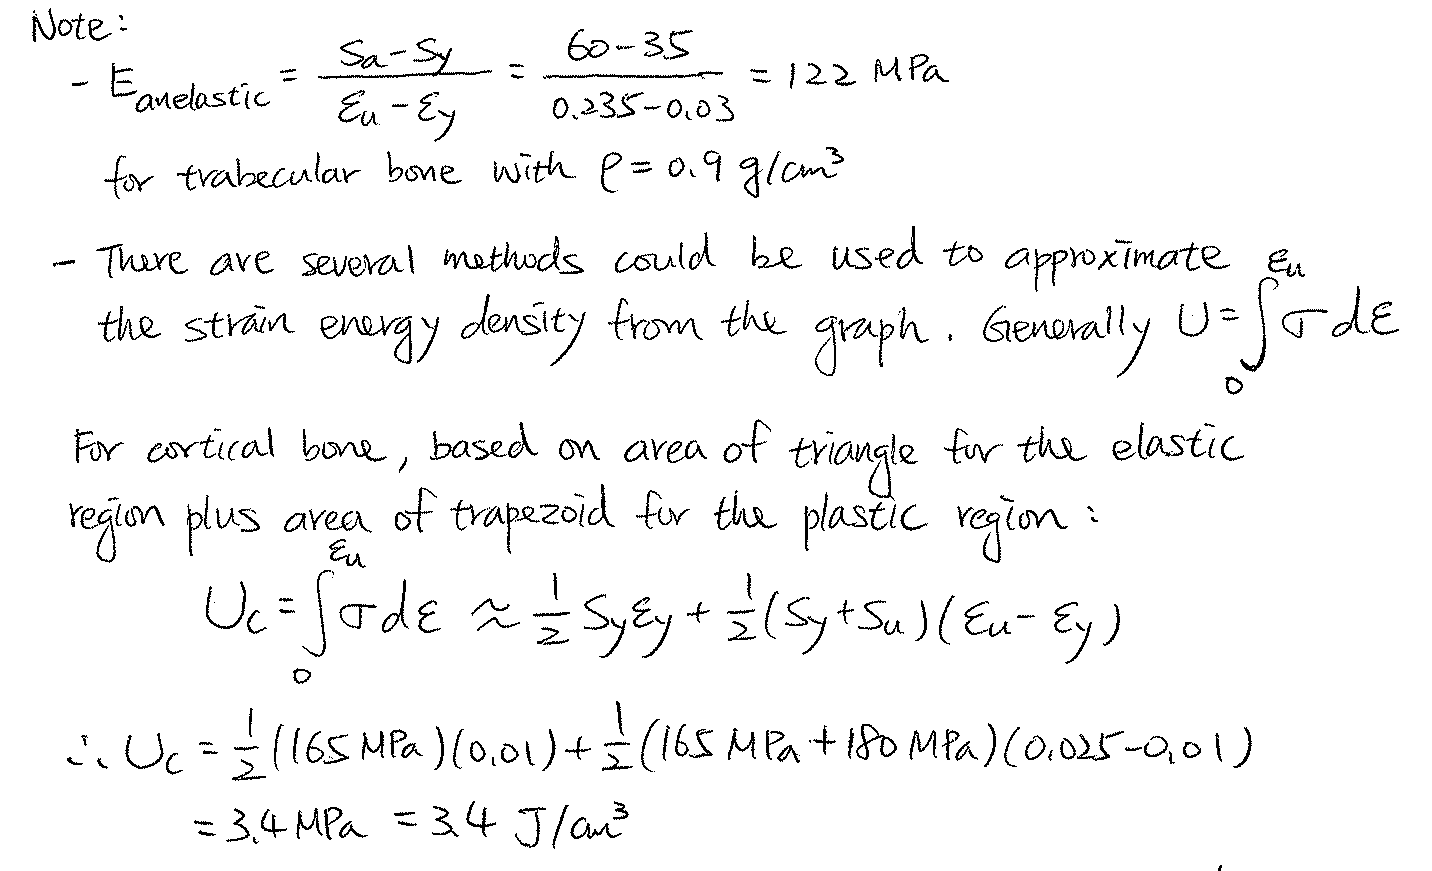 Note:
- E_anelastic = (Sa - Sy)/(εu - εy) = (60-35)/(0.235-0.03) = 122 MPa
for trabecular bone with ρ = 0.9 g/cm³
- There are several methods could be used to approximate
the strain energy density from the graph. Generally U = ∫₀^εu σ dε
For cortical bone, based on area of triangle for the elastic
region plus area of trapezoid for the plastic region:
Uc = ∫₀^εu σ dε ≈ 1/2 Sy εy + 1/2 (Sy + Su)(εu - εy)
∴ Uc = 1/2 (165 MPa)(0.01) + 1/2 (165 MPa + 180 MPa)(0.025-0.01)
= 3.4 MPa = 3.4 J/cm³